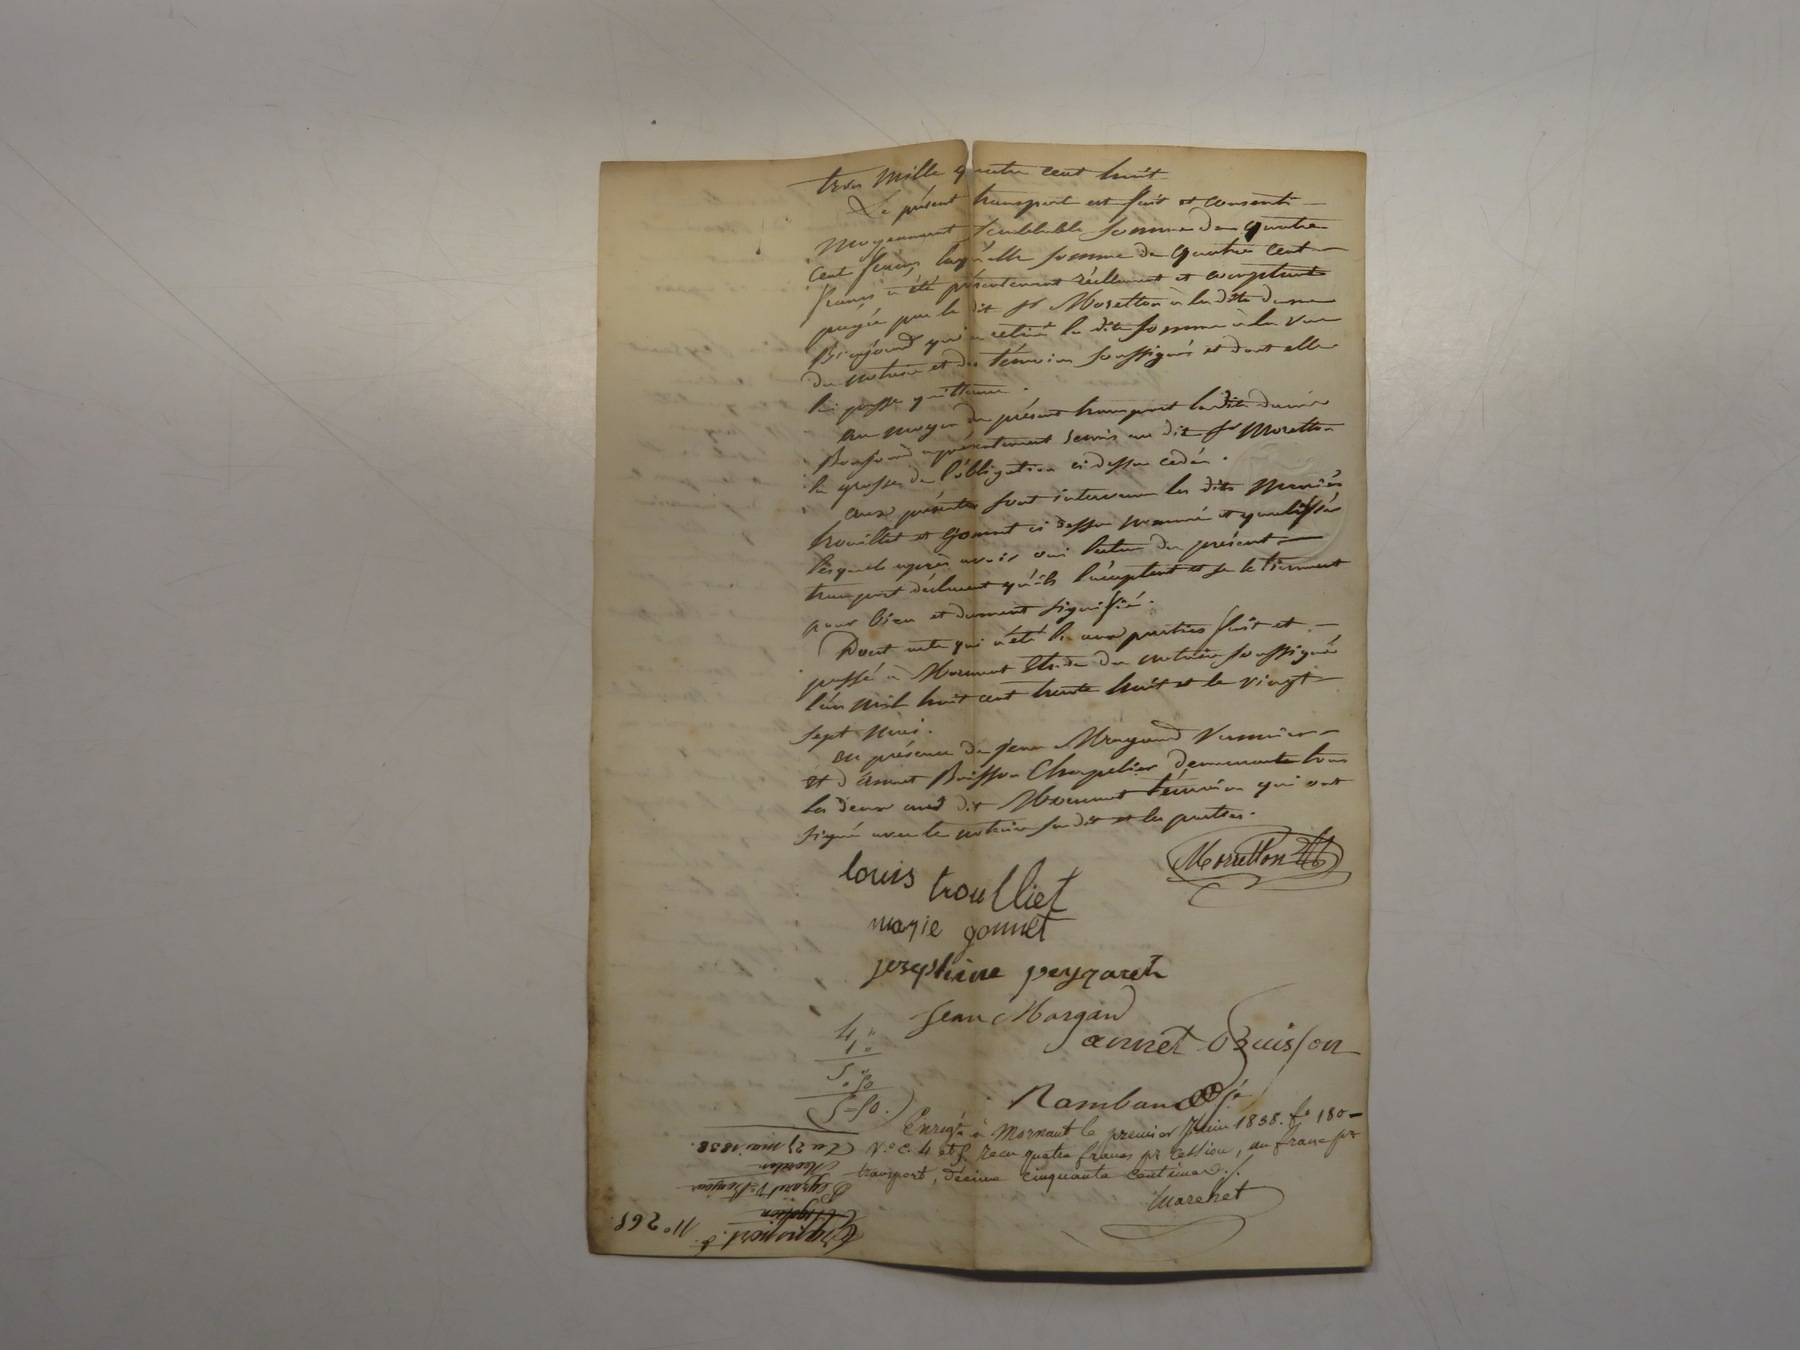 trois mille quatre cent huit
Le présent transport est fait et consenti
moyennant semblable somme de quatre
cent francs, laquelle somme de quatre cent
francs a été présentement réellement et comptant
payée par le dit sr Moretton à la dite dame
qui a retiré la dite somme à la vue
du notaire et des témoins soussignés et dont elle
lui passe quittance.
au moyen du présent transport la dite dame
a présentement remis au dit sr Moretton
la grosse de l'obligation ci dessus cédée.
aux présentes sont intervenu les dits mariés
trouillet et Gonnet ci dessus nommé et qualifiés
lesquels après avoir oui lecture du présent
transport déclarent qu'ils l'acceptent et se le tiennent
pour bien et dument signifié.
Dont acte qui a été lu aux parties fait et
passé à Mornant Etude du notaire soussigné
l'an mil huit cent trente huit et le vingt
sept mai.
en présence de jean Vermier
et d'annet Buisson Chapelier demeurants tous
les deux au dit Mornant témoins qui ont
signé avec le notaire susdit et les parties.
Moretton
louis troulliet
marie gonnet
josephine peyzaret
Jean Margand
annet Buisson
4 "
1 "
5 "
" 50
5=50.
Rambaud
Enregé à Mornant le premier juin 1838. fo 180
Vo C. 4 et 5. recu quatre francs pr cession, un franc pr
transport, décime cinquante centimes.
Marchet
Du 27 mai 1838.
Moretton
Transport
No 268